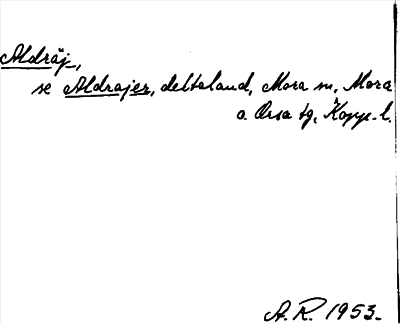 Aldräj,
se Aldrajer, deltaland, Mora sn, Mora
o. Orsa tg, Kopp. l.
A. R. 1953.